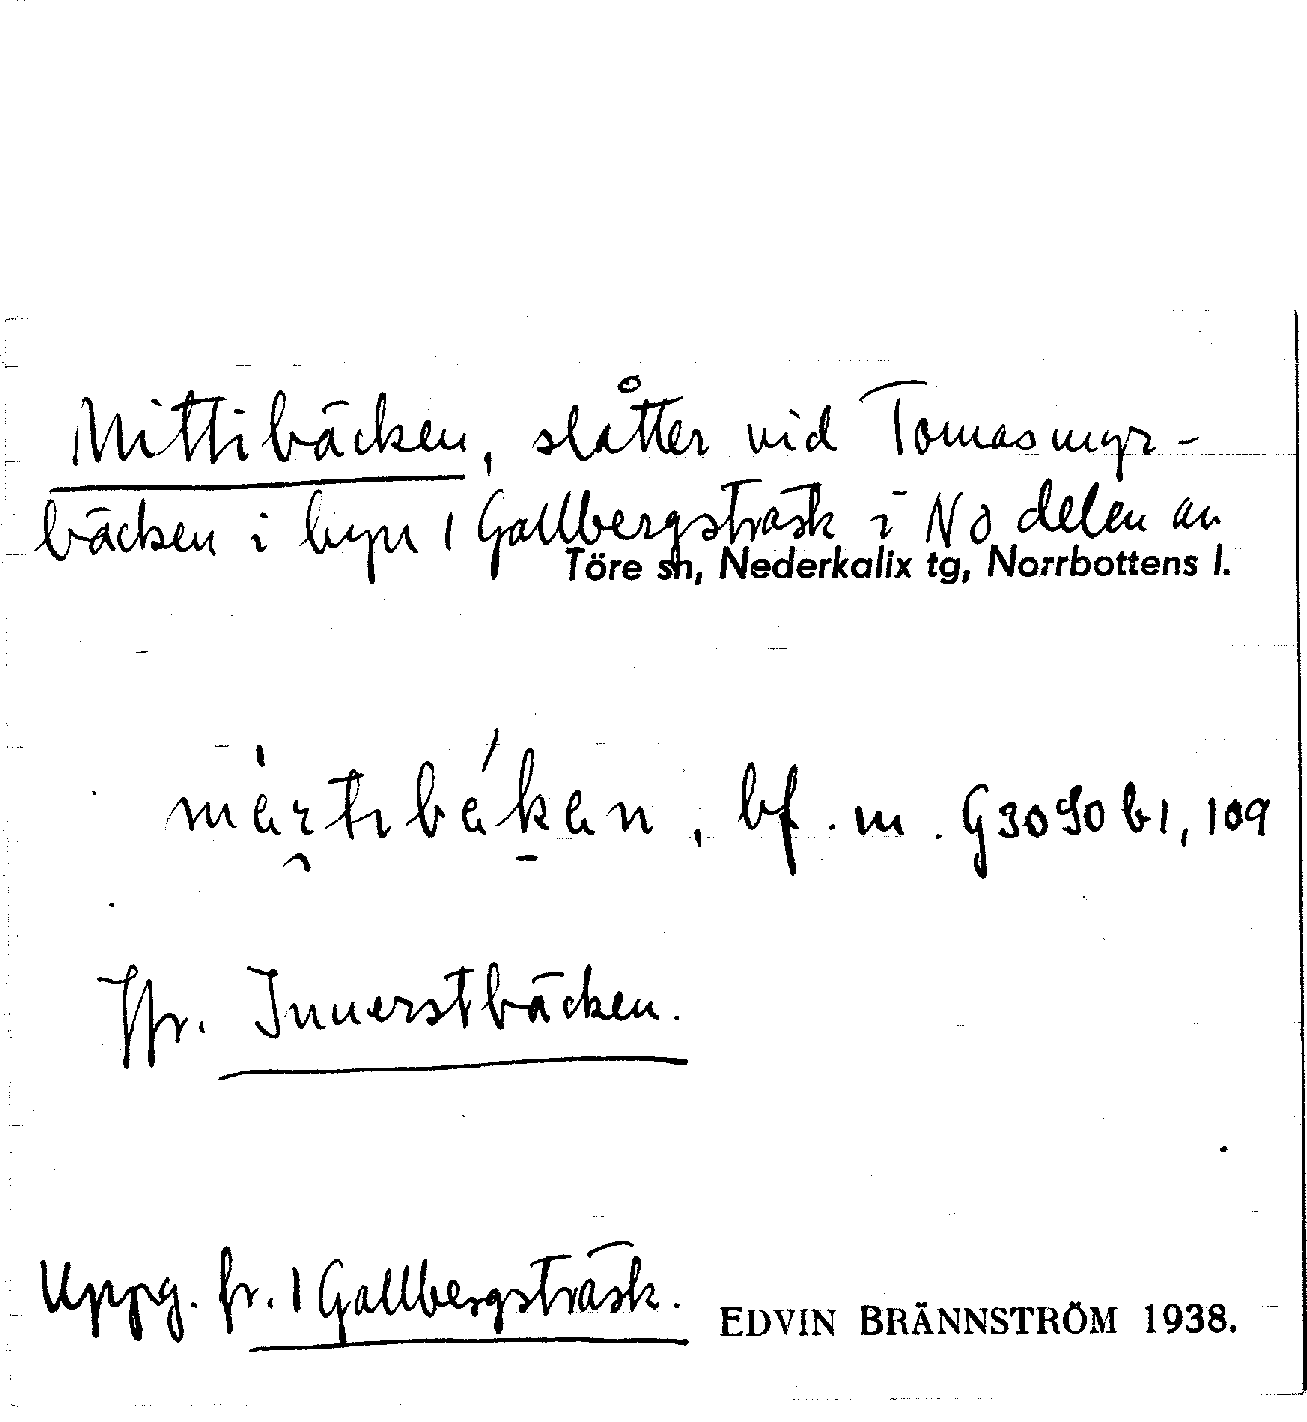 Mittibäcken, slåtter vid Tomasmyr-
bäcken i byn 1 Gallbergsträsk i NO delen av
Töre sn, Nederkalix tg, Norrbottens l.
bf. m. G3090 b1, 109
Jfr. Innerstbäcken.
Uppg. fr. 1 Gallbergsträsk. EDVIN BRÄNNSTRÖM 1938.